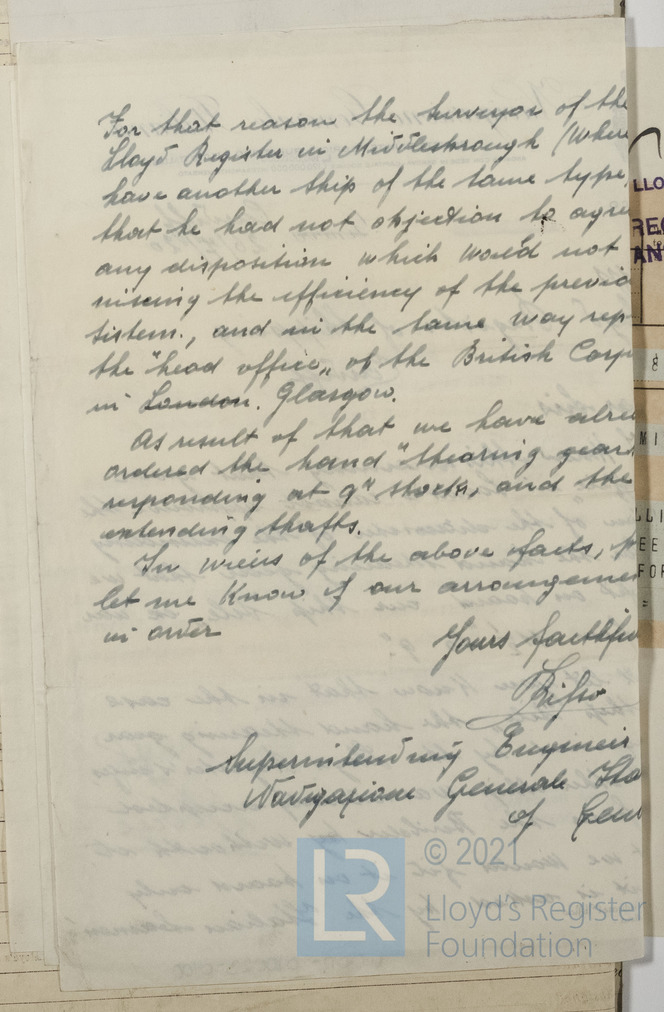 For that reason the Surveyor of the
Lloyd Register in Middlesbrough (where
have another ship of the same type,
that he had not objection to agre
any disposition which would not
the efficiency of the previo
sistem., and in the same way rep
the "head office„ of the British Corp
in London. Glasgow.
As result of that we have alre
ordered the hand "stearing gear
responding at 9" stocks, and the
extending shafts.
In weius of the above facts, p
let me Know if our arrangemen
in order
Yours faithfu
Superintending Engineir
Navigazione Generale Ita
of Gen
© 2021
Lloyd's Register
Foundation
LR
LLO
REG
AN
8
MI
LLI
EE
FOR